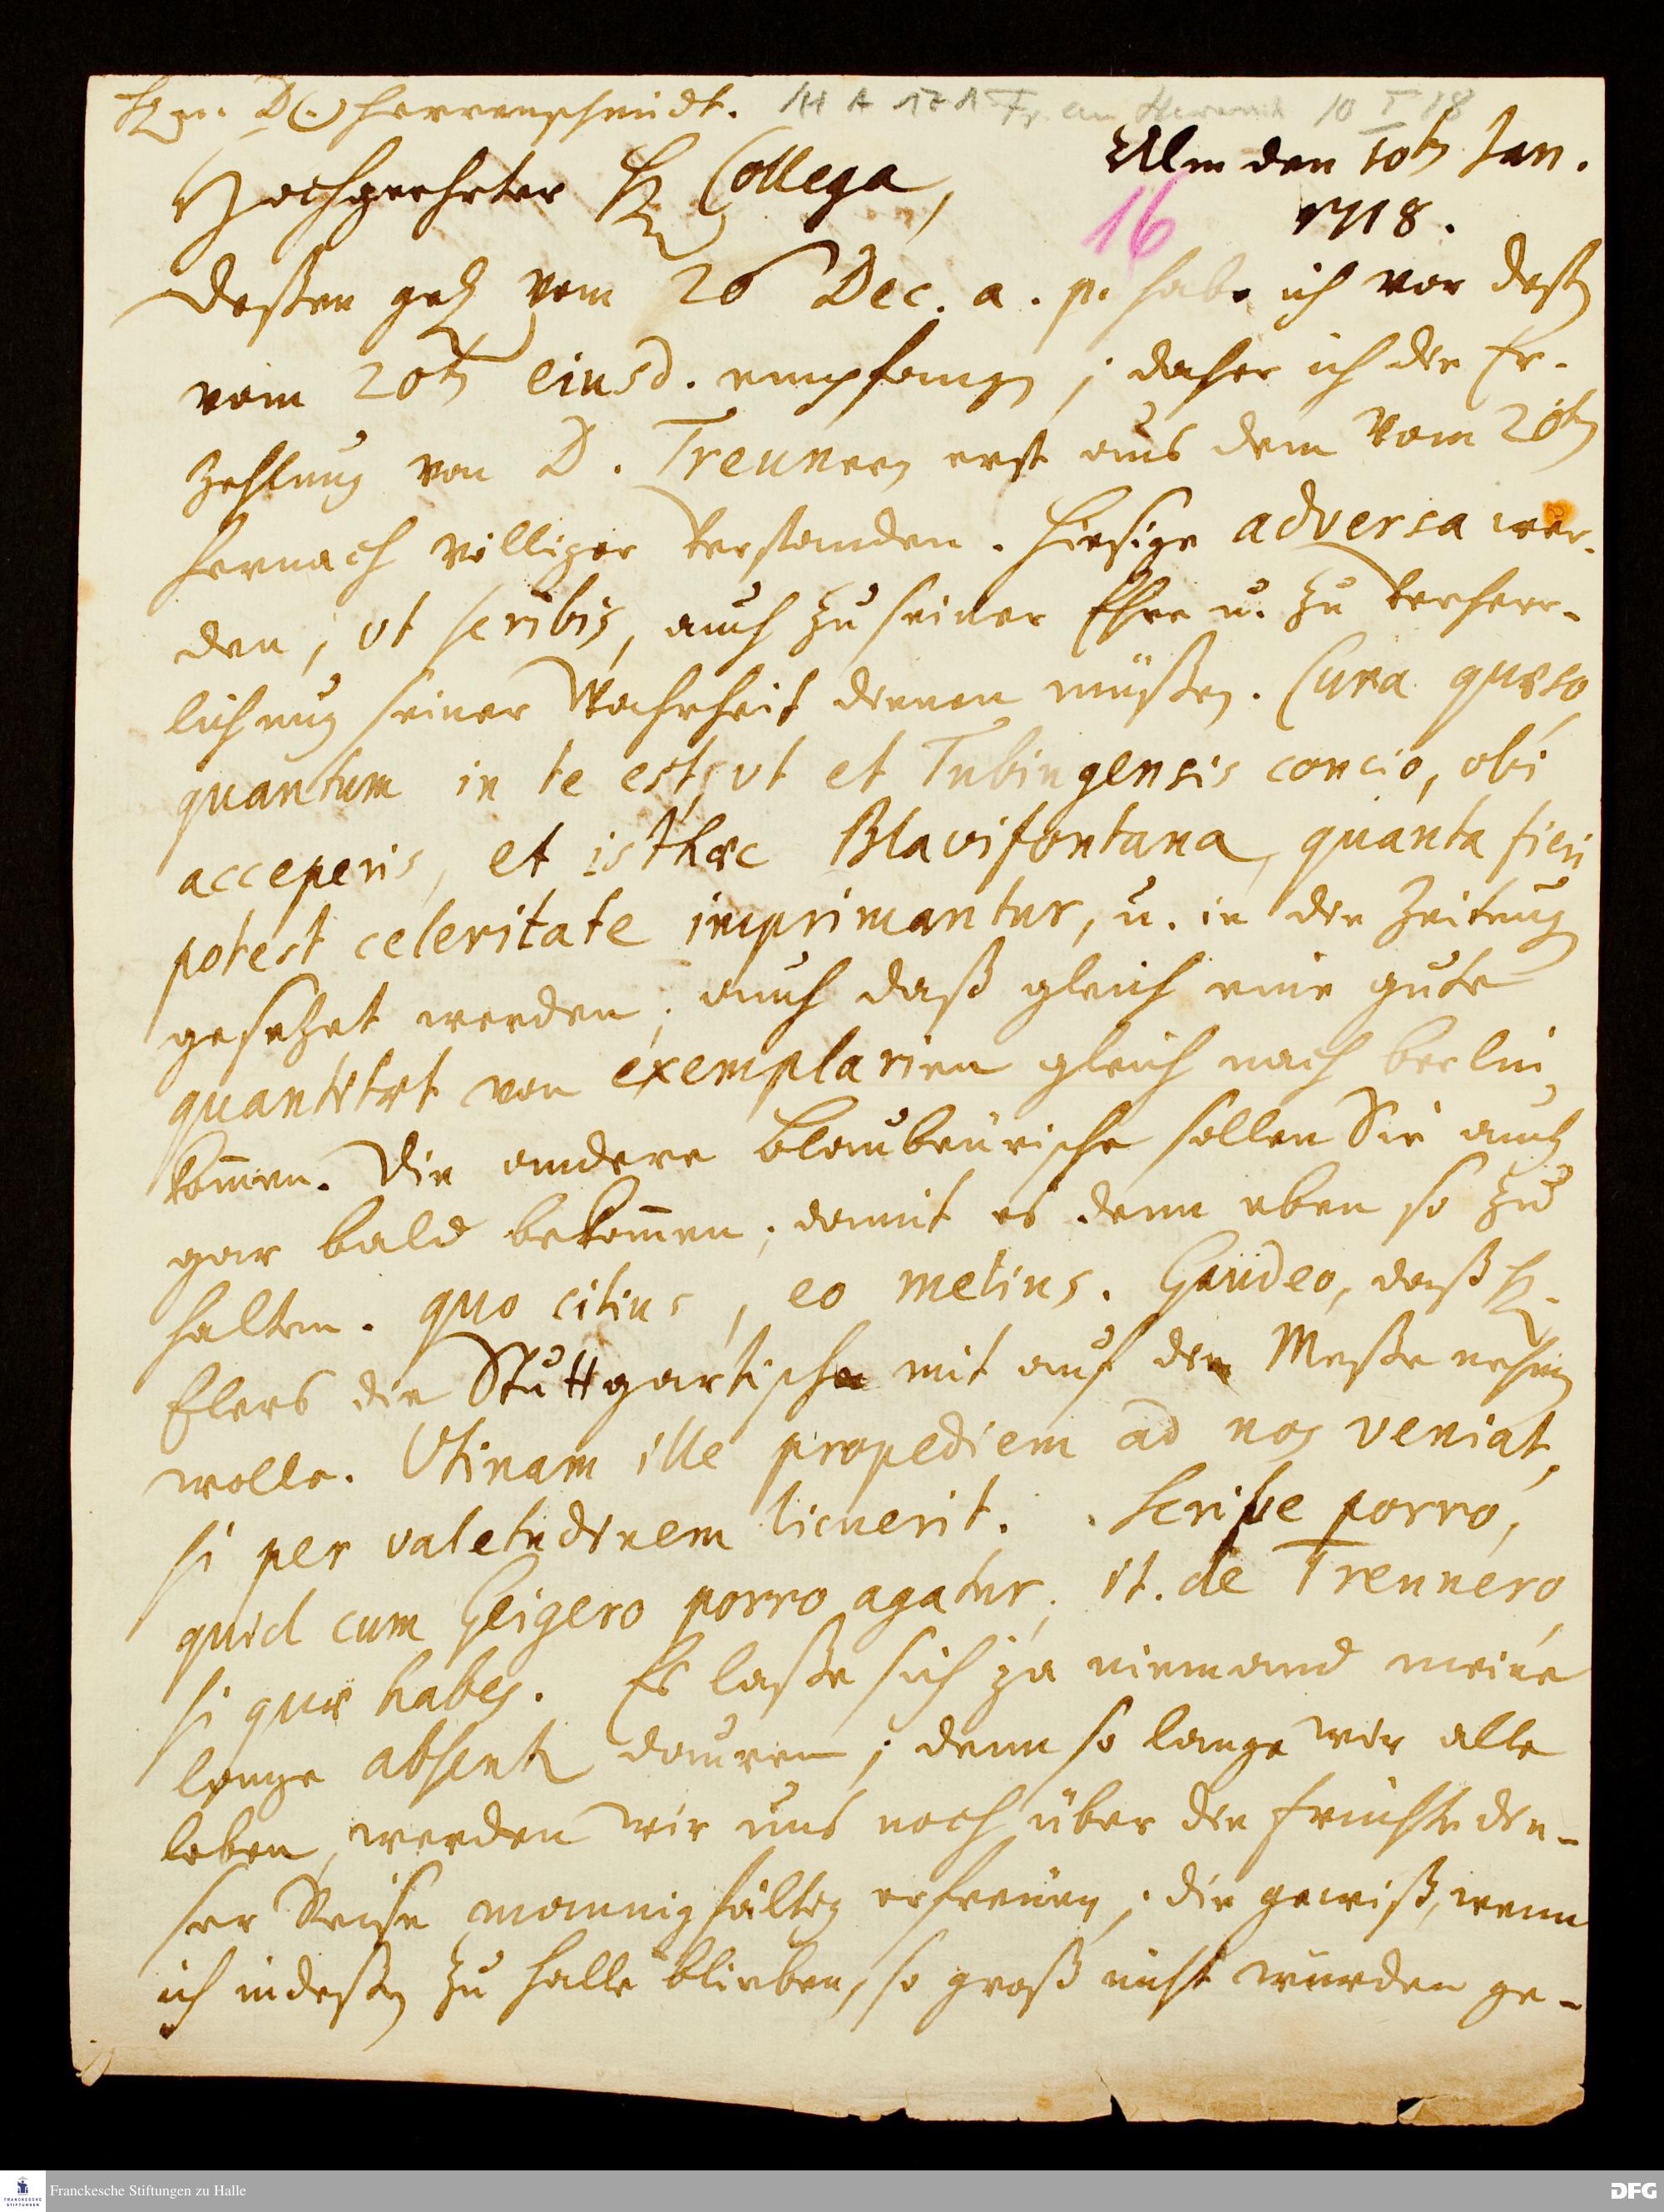 Hn. D. Herrenschmidt. III A 171 Fr. an Herrnsch 10 I 18
Ulm den 10ten Jan.
1718.
Hochgeehrter H. Collega,
16
Deßen gel. vom 26 Dec. a. p. habe ich vor deßen
vom 20ten eiusd. empfangen; daher ich die Er-
zehlung von D. Treunern erst aus dem vom 20ten
hernach völliger verstanden. Hiesige adversa wer-
den, ut scribis, auch zu seiner Ehre u. zu verherr-
lichung seiner Wahrheit dienen müßen. Cura quæso,
quantum in te est, ut et Tubingensis concio, ubi
acceperis, et isthæc Blavifontana, quanta fieri
potest celeritate imprimantur, u. in die Zeitung
gesetzet werden; auch daß gleich eine gute
quantitet von exemplarien gleich nach Berlin
kom̄en. Die andere Blaubeürische sollen Sie auch
gar bald bekom̄en; damit es denn eben so zu
halten. quo citius, eo melius. Gaudeo, daß H.
Elers die Stuttgartische mit auf die Meße nehmen
wolle. Utinam ille propediem ad nos veniat,
si per valetudinem licuerit. Scribe porro,
quid cum Geigero porro agatur, it. de Treunero,
si quæ habes. Es laße sich ja niemand meine
lange absentz dauren; denn so lange wir alle
leben, werden wir uns noch über die Früchte die-
ser Reise mannigfältig erfreuen; die gewiß, wenn
ich indeßen zu Halle blieben, so groß nicht würden ge-
Franckesche Stiftungen zu Halle
FRANCKESCHE STIFTUNGEN
DFG